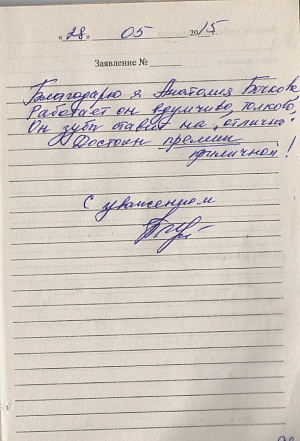 « 28 » 05 2015
Заявление №
Благодарю я Анатолия Бочкова
Работает он вдумчиво, толково,
Он зубы ставит на „отлично"
Достоин премии
приличной!
С уважением